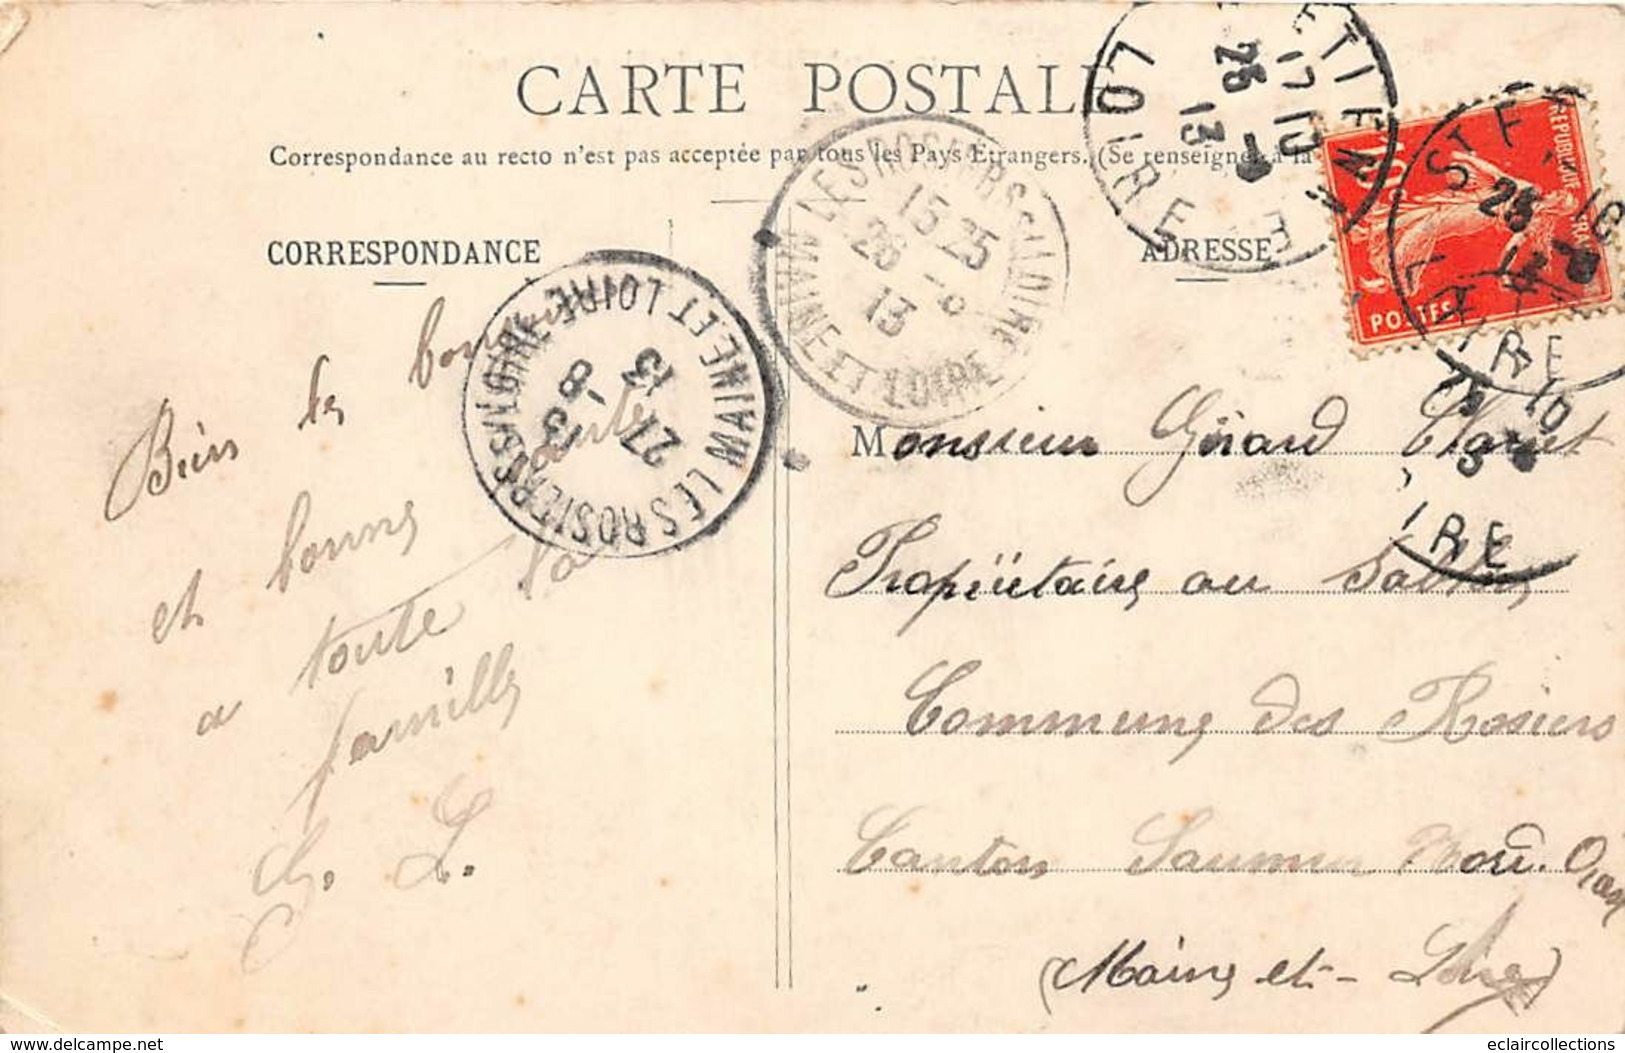 CARTE POSTALE
Correspondance au recto n'est pas acceptée par tous les Pays Etrangers. (Se renseigner à la
CORRESPONDANCE
ADRESSE
Bien le bonjour
et bonne santé
a toute la
famille
L.
Monsieur Gérard
Propriétaire au Sablon
Commune des Rosiers
Canton Saumur
(Maine-et-Loire)
LES ROSIERS S/ LOIRE
15 25
26 -8
13
MAINE ET LOIRE
LES ROSIERS S/ LOIRE
27 -8
13
MAINE ET LOIRE
ETIENNE
17 10
26 -8
13
LOIRE
REPUBLIQUE
10c
POSTES
ST E
LOIRE
eclaircollections